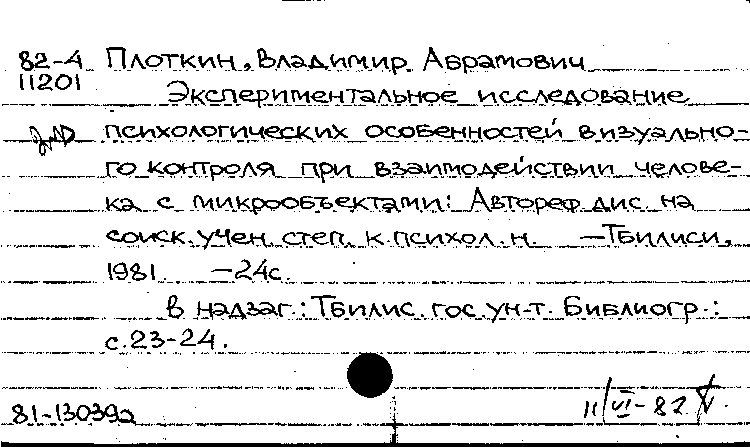 82-4 Плоткин, Владимир Абрамович
11201
Экспериментальное исследование
психологических особенностей визуально-
го контроля при взаимодействии челове-
ка с микрообъектами: Автореф. дис. на
соиск. учен. степ. к. психол. н. —Тбилиси,
1981. —24с.
В надзаг.: Тбилис. гос. ун-т. Библиогр.:
с. 23-24.
81-13039а
11/VI-82